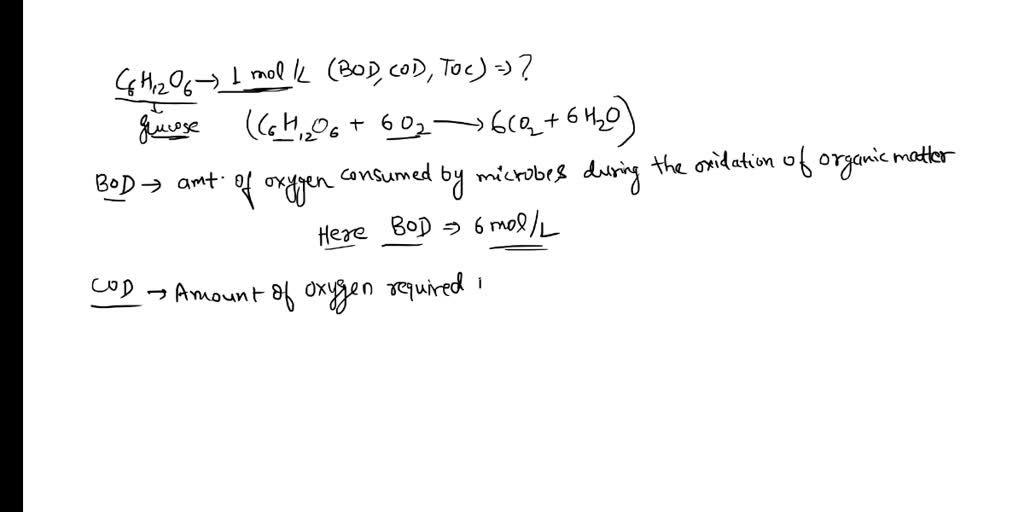 C6H12O6 → 1 mol/L (BOD, COD, TOC) ⇒ ?
↓
glucose (C6H12O6 + 6O2 → 6CO2 + 6H2O)
BOD → amt. of oxygen consumed by microbes during the oxidation of organic matter
Here BOD ⇒ 6 mol/L
COD → Amount of oxygen required